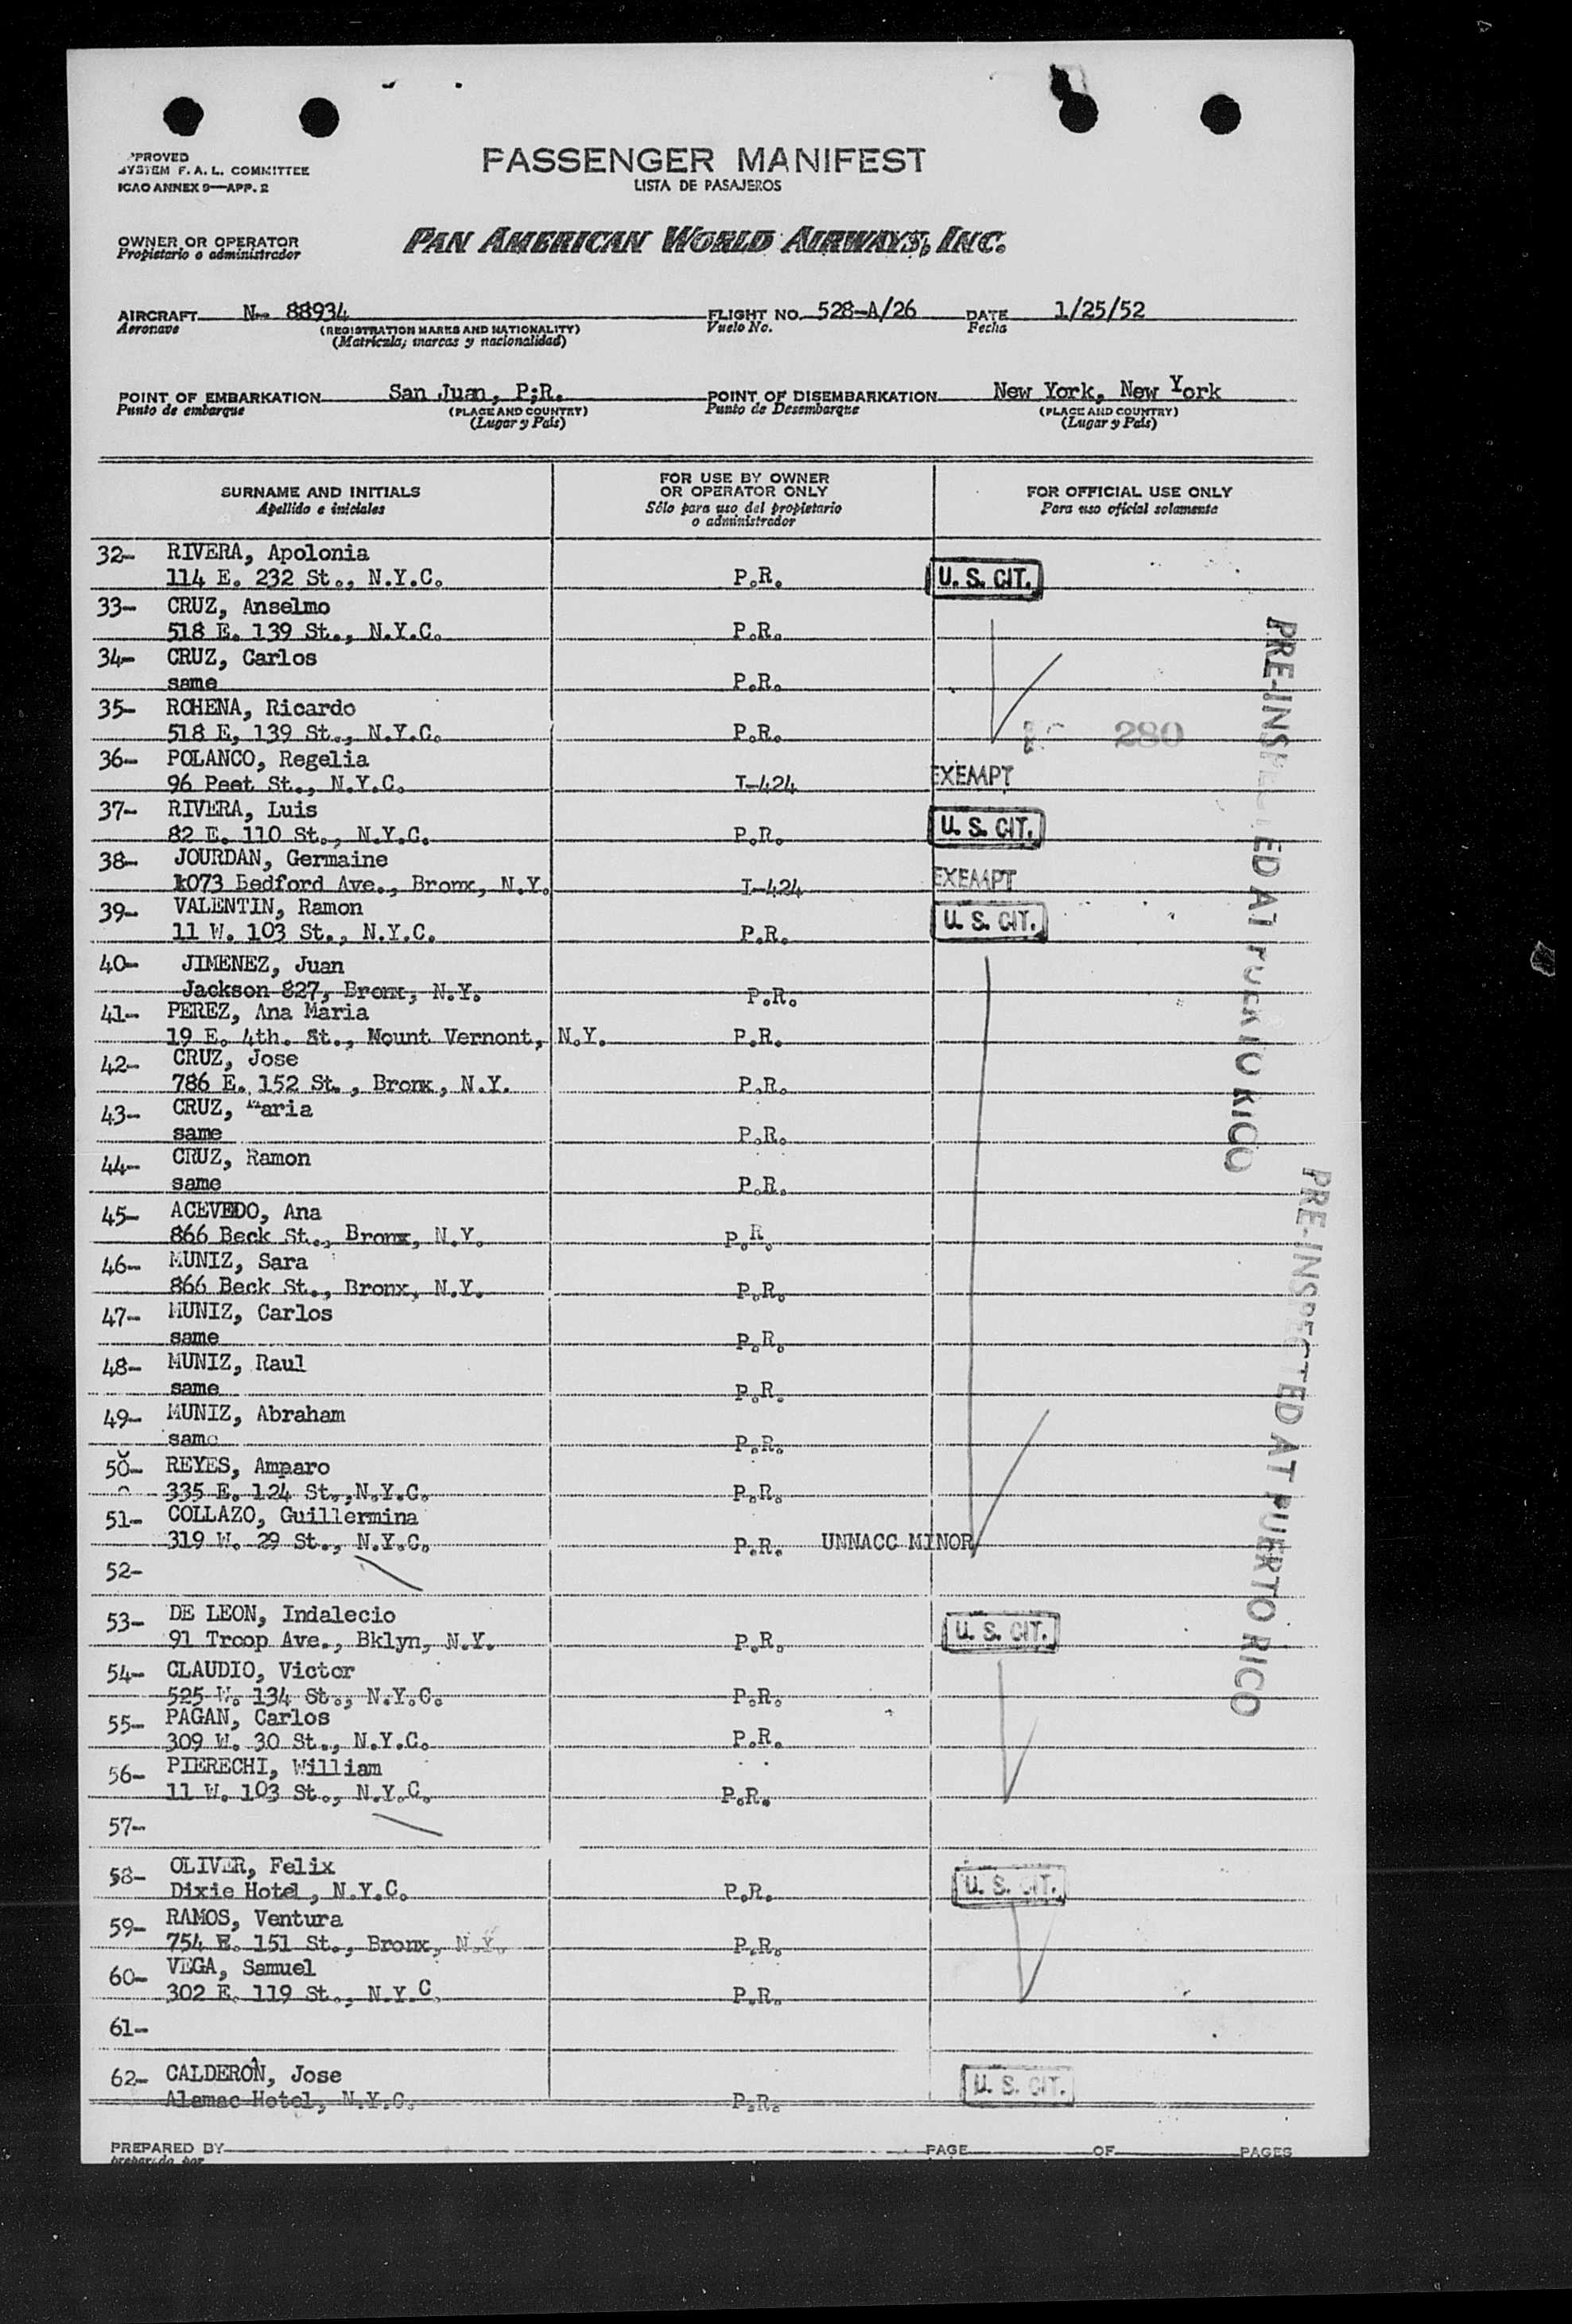 PROVED
SYSTEM F. A. L. COMMITTEE
ICAO ANNEX 9—APP. 2
PASSENGER MANIFEST
LISTA DE PASAJEROS
OWNER OR OPERATOR
Propietario o administrador
PAN AMERICAN WORLD AIRWAYS, INC.
AIRCRAFT N- 88934 FLIGHT NO. 528-A/26 DATE 1/25/52
Aeronave (REGISTRATION MARKS AND NATIONALITY) Vuelo No. Fecha
(Matrícula; marcas y nacionalidad)
POINT OF EMBARKATION San Juan, P;R. POINT OF DISEMBARKATION New York, New York
Punto de embarque (PLACE AND COUNTRY) Punto de Desembarque (PLACE AND COUNTRY)
(Lugar y País) (Lugar y País)
SURNAME AND INITIALS
Apellido e iniciales
FOR USE BY OWNER
OR OPERATOR ONLY
Sólo para uso del propietario
o administrador
FOR OFFICIAL USE ONLY
Para uso oficial solamente
32- RIVERA, Apolonia
114 E. 232 St., N.Y.C. P.R. U. S. CIT.
33- CRUZ, Anselmo
518 E. 139 St., N.Y.C. P.R.
34- CRUZ, Carlos
same P.R.
35- ROHENA, Ricardo
518 E, 139 St., N.Y.C. P.R. 280
36- POLANCO, Regelia
96 Peet St., N.Y.C. I-424 EXEMPT
37- RIVERA, Luis
82 E. 110 St., N.Y.C. P.R. U. S. CIT.
38- JOURDAN, Germaine
1073 Bedford Ave., Bronx, N.Y. I-424 EXEMPT
39- VALENTIN, Ramon
11 W. 103 St., N.Y.C. P.R. U. S. CIT.
40- JIMENEZ, Juan
Jackson 827, Bronx, N.Y. P.R.
41- PEREZ, Ana Maria
19 E. 4th. St., Mount Vernont, N.Y. P.R.
42- CRUZ, Jose
786 E. 152 St., Bronx, N.Y. P.R.
43- CRUZ, Maria
same P.R.
44- CRUZ, Ramon
same P.R.
45- ACEVEDO, Ana
866 Beck St., Bronx, N.Y. P.R.
46- MUNIZ, Sara
866 Beck St., Bronx, N.Y. P.R.
47- MUNIZ, Carlos
same P.R.
48- MUNIZ, Raul
same P.R.
49- MUNIZ, Abraham
same P.R.
50- REYES, Amparo
335 E. 124 St., N.Y.C. P.R.
51- COLLAZO, Guillermina
319 W. 29 St., N.Y.C. P.R. UNNACC MINOR
52-
53- DE LEON, Indalecio
91 Troop Ave., Bklyn, N.Y. P.R. U. S. CIT.
54- CLAUDIO, Victor
525 W. 134 St., N.Y.C. P.R.
55- PAGAN, Carlos
309 W. 30 St., N.Y.C. P.R.
56- PIERECHI, William
11 W. 103 St., N.Y.C. P.R.
57-
58- OLIVER, Felix
Dixie Hotel, N.Y.C. P.R. U. S. CIT.
59- RAMOS, Ventura
754 E. 151 St., Bronx, N.Y. P.R.
60- VEGA, Samuel
302 E. 119 St., N.Y.C. P.R.
61-
62- CALDERON, Jose
Alamac Hotel, N.Y.C. P.R. U. S. CIT.
PRE-INSPECTED AT PUERTO RICO
PRE-INSPECTED AT PUERTO RICO
PREPARED BY PAGE OF PAGES
preparado por